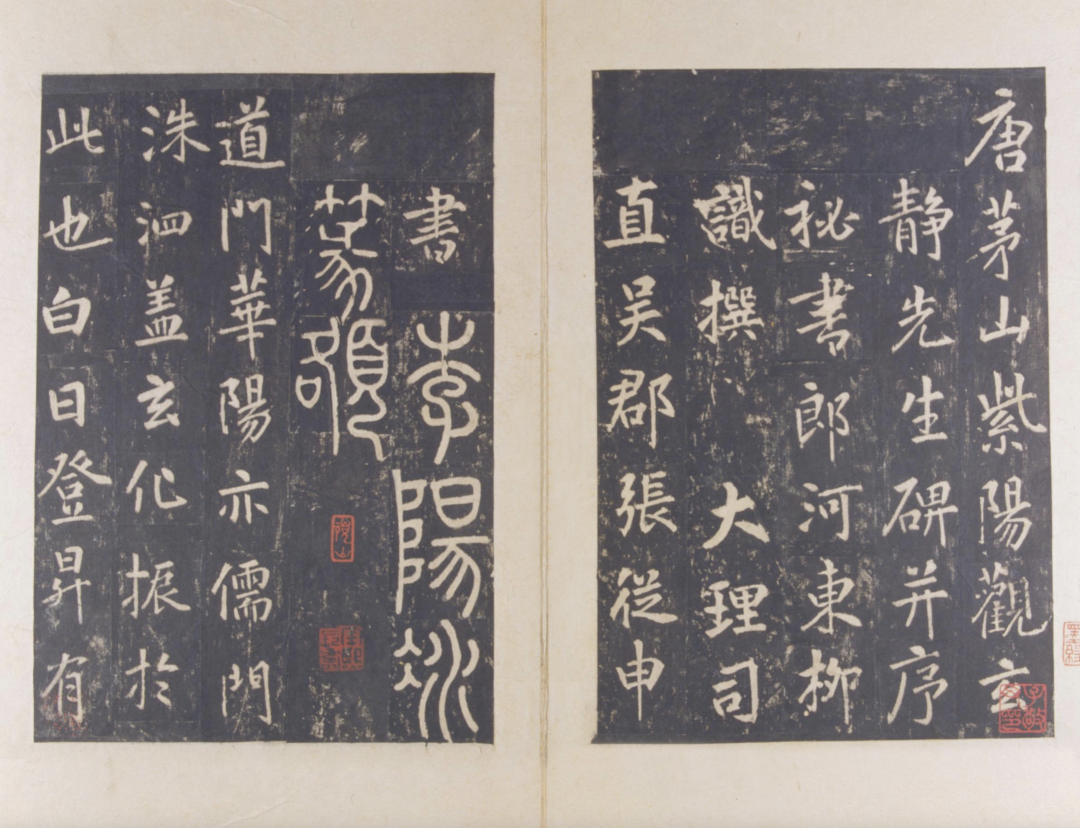 唐茅山紫陽觀玄
靜先生碑并序
祕書郎河東柳
識撰 大理司
直吳郡張從申
書 李陽冰
篆額
道門華陽亦儒門
洙泗盖玄化振於
此也白日登昇有